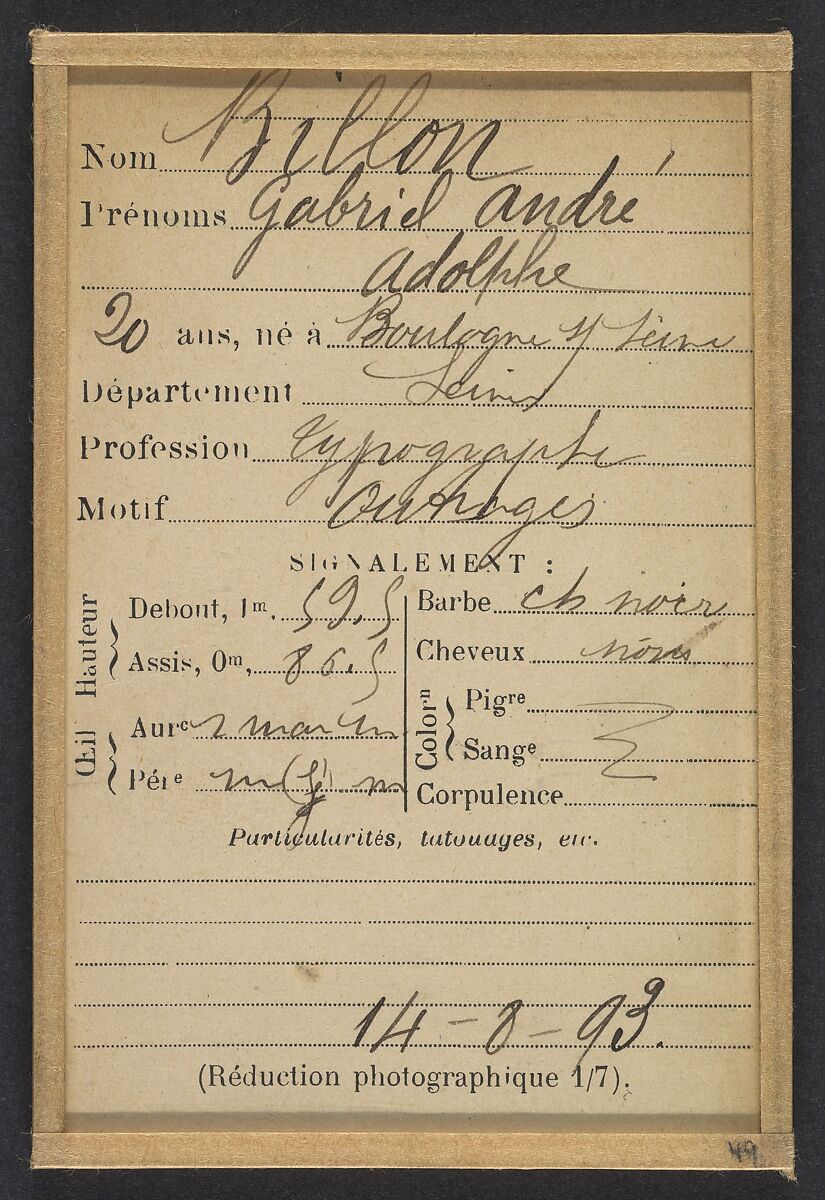 Nom Billon
Prénoms Gabriel André
Adolphe
20 ans, né à Boulogne s/ Seine
Département Seine
Profession Typographe
Motif Outrages
SIGNALEMENT :
Hauteur
Debout, 1m. 59,5
Assis, 0m, 86,5
Œil
Aure
Pére
Barbe ch noir
Cheveux noirs
Colorn
Pigre
Sange
Corpulence
Particularités, tatouages, etc.
14 - 8 - 93.
(Réduction photographique 1/7).
49